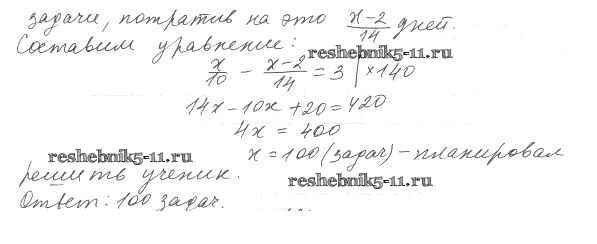 задачи, потратив на это (x-2)/14 дней.
Составим уравнение:
reshebnik5-11.ru
x/10 - (x-2)/14 = 3 | ×140
14x-10x+20=420
4x = 400
reshebnik5-11.ru
x=100 (задач) - планировал
решить ученик.
reshebnik5-11.ru
Ответ: 100 задач.